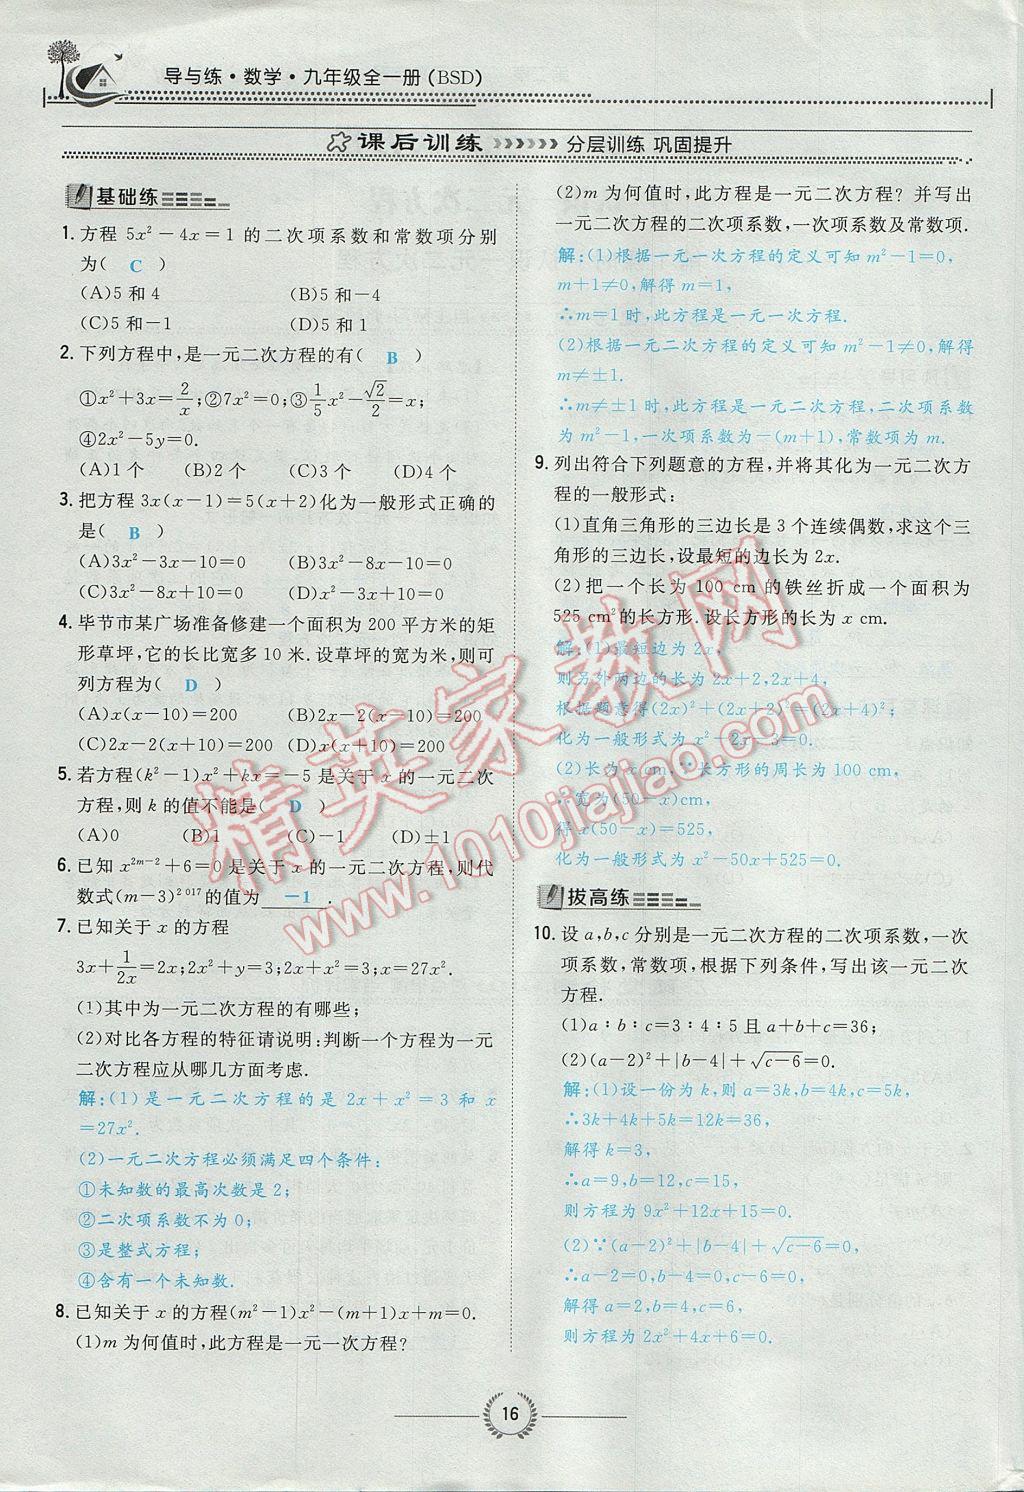 导与练·数学·九年级全一册(BSD)
课后训练 分层训练 巩固提升
基础练
1. 方程 5x²－4x＝1 的二次项系数和常数项分别
为( C )
(A)5 和 4 (B)5 和－4
(C)5 和－1 (D)5 和 1
2. 下列方程中,是一元二次方程的有( B )
①x²＋3x＝2/x;②7x²＝0;③1/5x²－√2/2＝x;
④2x²－5y＝0.
(A)1 个 (B)2 个 (C)3 个 (D)4 个
3. 把方程 3x(x－1)＝5(x＋2)化为一般形式正确的
是( B )
(A)3x²－3x－10＝0 (B)3x²－8x－10＝0
(C)3x²－8x＋10＝0 (D)x²－3x－10＝0
4. 毕节市某广场准备修建一个面积为 200 平方米的矩
形草坪,它的长比宽多 10 米.设草坪的宽为米,则可
列方程为( D )
(A)x(x－10)＝200 (B)2x－2(x－10)＝200
(C)2x－2(x＋10)＝200 (D)x(x＋10)＝200
5. 若方程(k²－1)x²＋kx＝－5 是关于 x 的一元二次
方程,则 k 的值不能是( D )
(A)0 (B)1 (C)－1 (D)±1
6. 已知 x²ᵐ⁻²＋6＝0 是关于 x 的一元二次方程,则代
数式(m－3)²⁰¹⁷的值为 －1 .
7. 已知关于 x 的方程
3x＋1/2x＝2;x²＋y＝3;2x＋x²＝3;x＝27x².
(1)其中为一元二次方程的有哪些;
(2)对比各方程的特征请说明:判断一个方程为一元
二次方程应从哪几方面考虑.
解:(1)是一元二次方程的是 2x＋x²＝3 和 x
＝27x².
(2)一元二次方程必须满足四个条件:
①未知数的最高次数是 2;
②二次项系数不为 0;
③是整式方程;
④含有一个未知数.
8. 已知关于 x 的方程(m²－1)x²－(m＋1)x＋m＝0.
(1)m 为何值时,此方程是一元一次方程?
(2)m 为何值时,此方程是一元二次方程? 并写出
一元二次方程的二次项系数,一次项系数及常数项.
解:(1)根据一元一次方程的定义可知 m²－1＝0,
m＋1≠0,解得 m＝1,
∴m＝1 时,此方程是一元一次方程.
(2)根据一元二次方程的定义可知 m²－1≠0,解得
m≠±1.
∴m≠±1 时,此方程是一元二次方程,二次项系数
为 m²－1,一次项系数为－(m＋1),常数项为 m.
9. 列出符合下列题意的方程,并将其化为一元二次方
程的一般形式:
(1)直角三角形的三边长是 3 个连续偶数,求这个三
角形的三边长,设最短的边长为 2x.
(2)把一个长为 100 cm 的铁丝折成一个面积为
525 cm²的长方形.设长方形的长为 x cm.
解:(1)最短边为 2x,
则另外两边的长为 2x＋2,2x＋4,
根据题意得(2x)²＋(2x＋2)²＝(2x＋4)²;
化为一般形式为 x²－2x－3＝0.
(2)长为 x cm,∵长方形的周长为 100 cm,
∴宽为(50－x)cm,
得 x(50－x)＝525,
化为一般形式为 x²－50x＋525＝0.
拔高练
10. 设 a,b,c 分别是一元二次方程的二次项系数,一次
项系数,常数项,根据下列条件,写出该一元二次
方程.
(1)a∶b∶c＝3∶4∶5 且 a＋b＋c＝36;
(2)(a－2)²＋|b－4|＋√(c－6)＝0.
解:(1)设一份为 k,则 a＝3k,b＝4k,c＝5k,
∴3k＋4k＋5k＝12k＝36,
解得 k＝3,
∴a＝9,b＝12,c＝15,
则方程为 9x²＋12x＋15＝0.
(2)∵(a－2)²＋|b－4|＋√(c－6)＝0,
∴a－2＝0,b－4＝0,c－6＝0,
解得 a＝2,b＝4,c＝6,
则方程为 2x²＋4x＋6＝0.
16
精英家教网
www.1010jiajiao.com